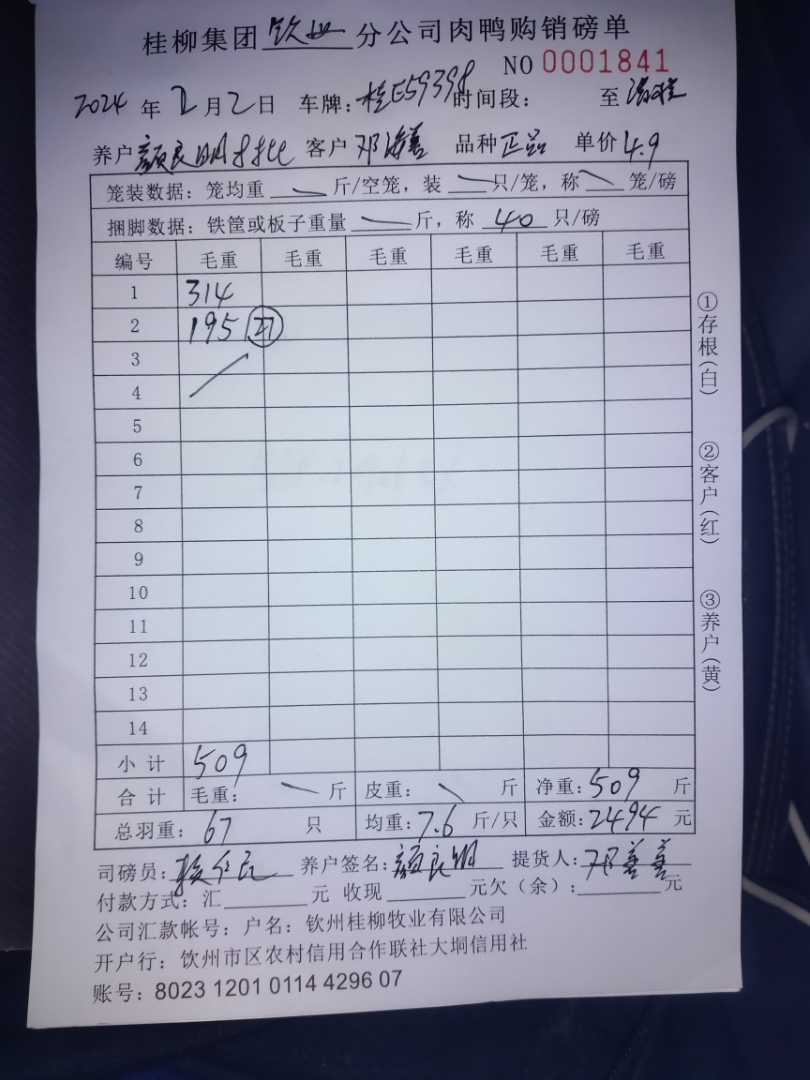 桂柳集团 钦州 分公司肉鸭购销磅单
NO 0001841
2024 年 2 月 2 日 车牌：桂E59398 时间段： 至
养户 颜良明 客户 邓海善 品种 正品 单价 4.9
笼装数据：笼均重 斤/空笼，装 只/笼，称 笼/磅
捆脚数据：铁筐或板子重量 斤，称 40 只/磅
编号 毛重 毛重 毛重 毛重 毛重 毛重
1 314
2 195 27
3
4
5
6
7
8
9
10
11
12
13
14
小 计 509
合 计 毛重： 斤 皮重： 斤 净重：509 斤
总羽重：67 只 均重：7.6 斤/只 金额：2494 元
司磅员： 养户签名：颜良明 提货人：邓善善
付款方式：汇 元 收现 元欠（余）： 元
公司汇款帐号：户名：钦州桂柳牧业有限公司
开户行：钦州市区农村信用合作联社大垌信用社
账号：8023 1201 0114 4296 07
①存根（白）
②客户（红）
③养户（黄）